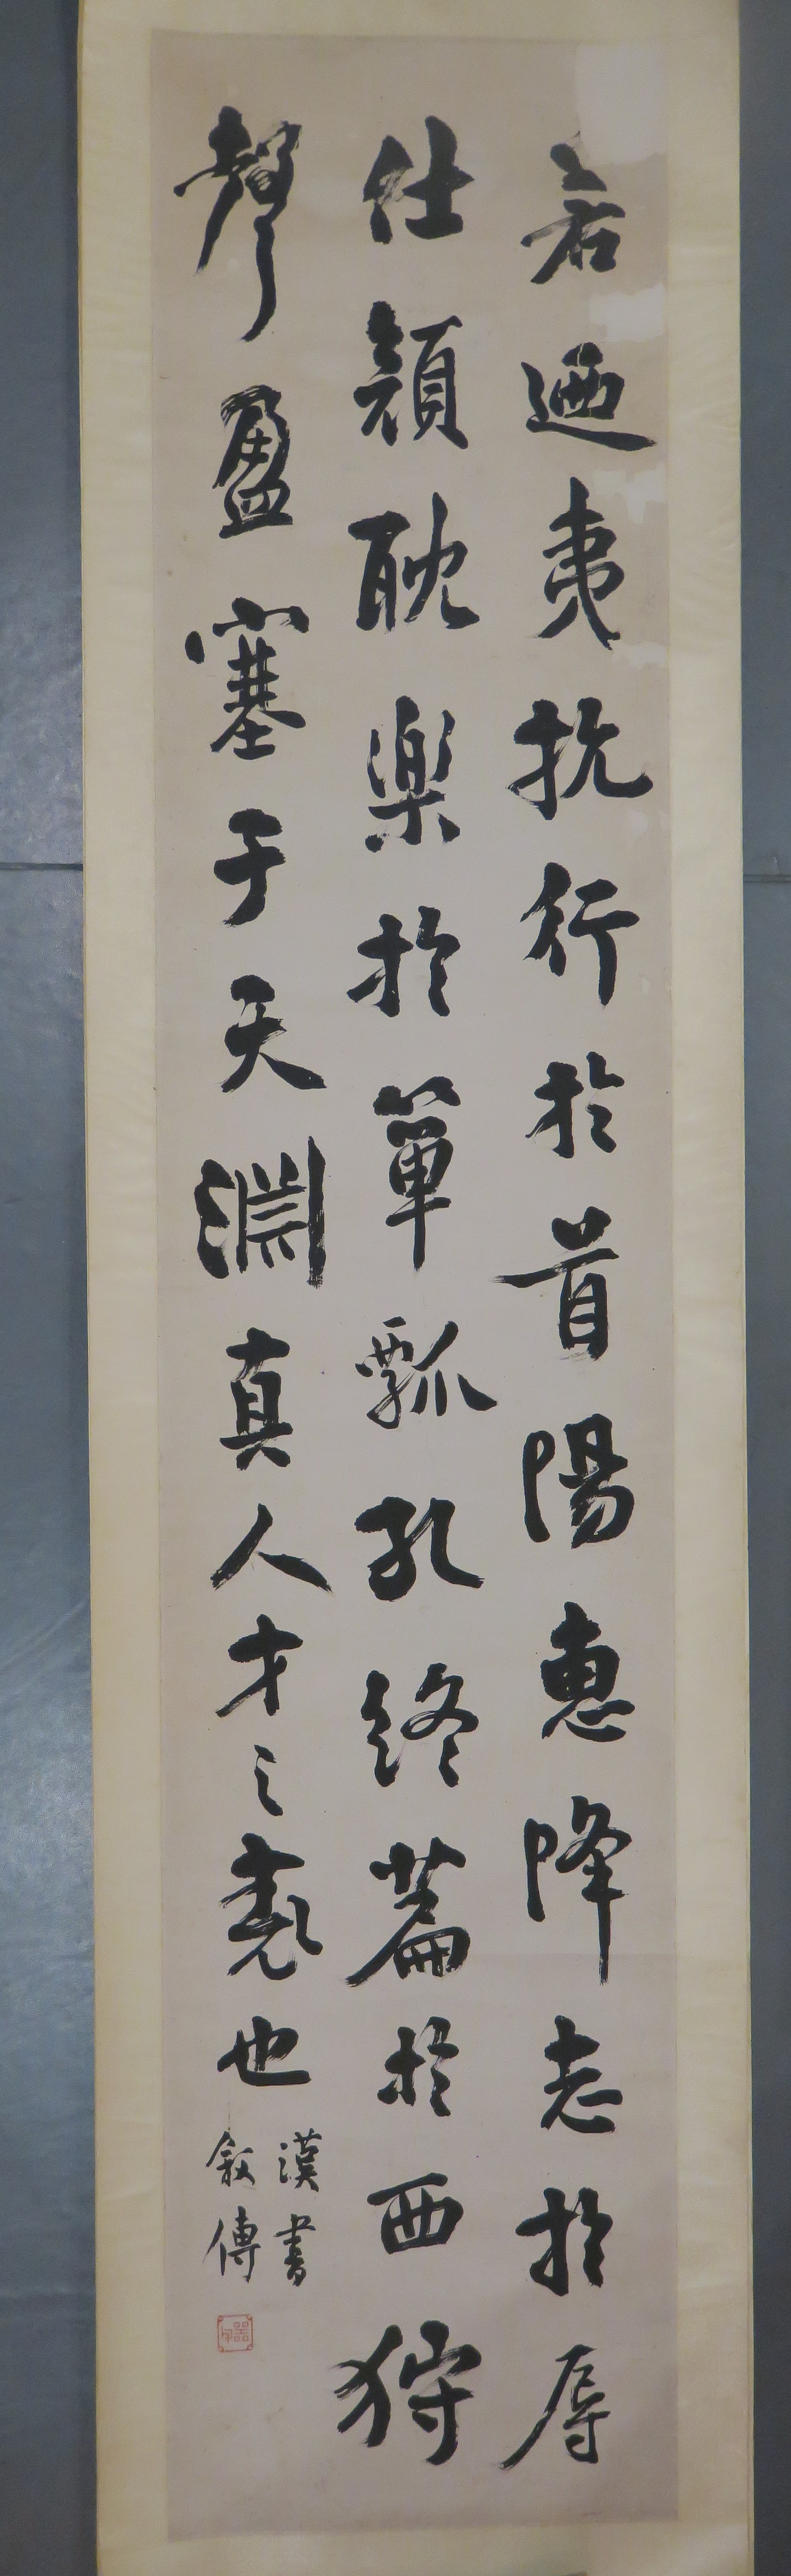 若迺夷抗行於首陽惠降志於辱
仕顏耽樂於簞瓢孔終篇於西狩
聲盈塞于天淵真人才之表也
漢書
敘傳